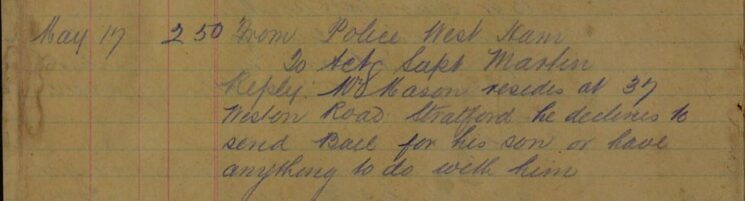 May 17 2 50 From Police West Ham
To Actg Supt Martin
Reply: Mr Mason resides at 37
Weston Road Stratford he declines to
send Bail for his son or have
anything to do with him